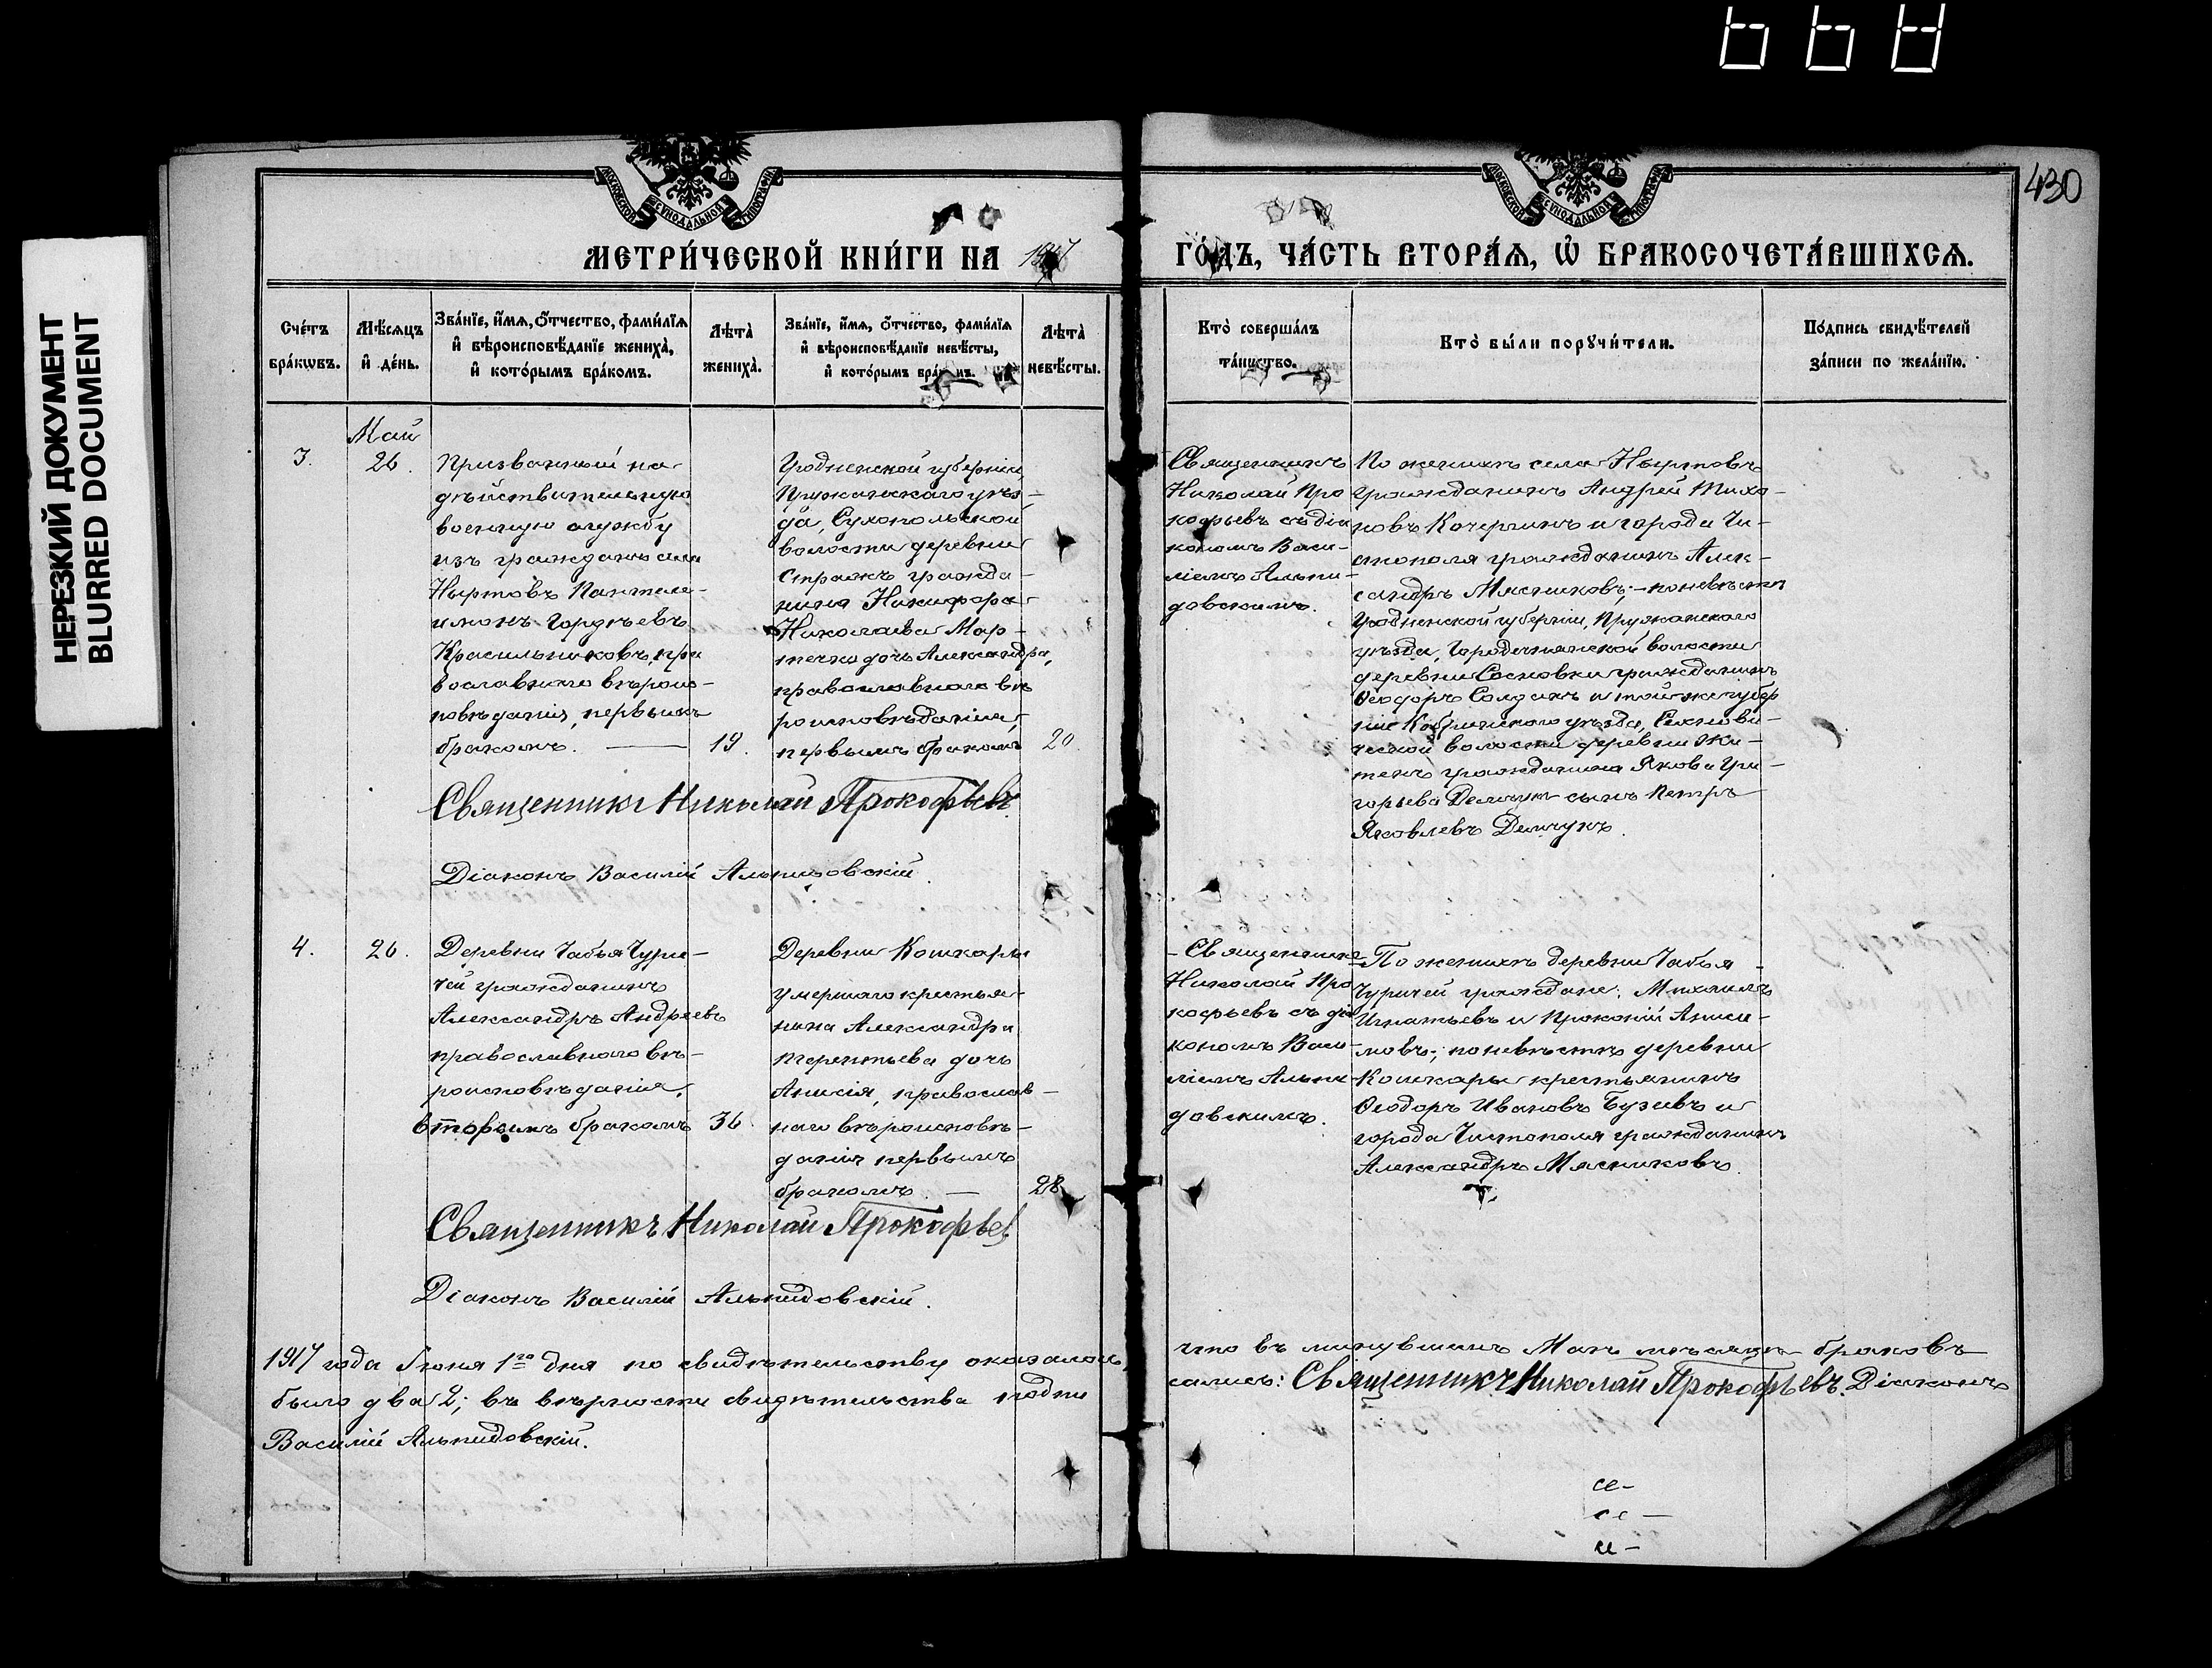 430
НЕРЕЗКИЙ ДОКУМЕНТ
BLURRED DOCUMENT
МОСКОВСКОЙ СѴНОДАЛЬНОЙ ТИПОГРАФІИ
МОСКОВСКОЙ СѴНОДАЛЬНОЙ ТИПОГРАФІИ
МЕТРИ́ЧЕСКОЙ КНИ́ГИ НА 1917
ГО́ДЪ, ЧА́СТЬ ВТОРА́Ѧ, Ѽ БРАКОСОЧЕТА́ВШИХСѦ.
Сче́тъ
бра́кѡвъ.
Мѣ́сяцъ
и҆ де́нь.
Зва́нїе, и҆́мѧ, ѻ҆́тчество, фами́лїѧ
и҆ вѣроисповѣ́данїе жениха̀,
и҆ кото́рымъ бра́комъ.
Лѣта̀
жениха̀.
Зва́нїе, и҆́мѧ, ѻ҆́тчество, фами́лїѧ
и҆ вѣроисповѣ́данїе невѣ́сты,
и҆ кото́рымъ бра́комъ.
Лѣта̀
невѣ́сты.
Кто̀ соверша́лъ
та́инство.
Кто̀ бы́ли порꙋчи́тели.
По́дпись свидѣ́телей
за́писи по жела́нїю.
3.
Май
26.
Призванный на
дѣйствительную
военную службу
изъ гражданъ села
Ныртовъ Пантеле-
имонъ Гордѣевъ
Красильниковъ, пра
вославнаго вѣроис-
повѣданія, первымъ
бракомъ.
19.
Гродненской губерніи,
Пружанскаго уѣз-
да, Сухопольской
волости деревни
Стражъ гражда-
нина Никифора
Николаева Мар-
течко дочь Александра,
православнаго вѣ
роисповѣданія,
первымъ бракомъ
20.
Священникъ
Николай Про
кофьевъ съ діа
кономъ Васи-
ліемъ Альпи-
довскимъ.
По женихѣ села Ныртовъ
гражданинъ Андрей Тихо-
новъ Кочергинъ и города Чи-
стополя гражданинъ Алек-
сандръ Мясниковъ; - по невѣстѣ
Гродненской губерніи, Пружанскаго
уѣзда, Городечнянской волости
деревни Сосновки гражданинъ
Ѳеодоръ Солданъ и той же губер
ніи Кобринскаго уѣзда, Сехнови-
ческой волости деревни Жи-
тенъ гражданина Якова Гри-
горьева Демчукъ сынъ Петръ
Яковлевъ Демчукъ.
Священникъ Николай Прокофьевъ.
Діаконъ Василій Альпидовскій.
4.
26.
Деревни Чабья Чури-
чей гражданинъ
Александръ Андреевъ
православнаго вѣ-
роисповѣданія,
вторымъ бракомъ
36.
Деревни Кошкары
умершаго крестья-
нина Александра
Терентьева дочь
Анисія, православ-
наго вѣроисповѣ-
данія первымъ
бракомъ.
28
Священникъ
Николай Про
кофьевъ съ діа
кономъ Васи-
ліемъ Альпи
довскимъ.
По женихѣ деревни Чабья-
Чуричей граждане: Михаилъ
Игнатьевъ и Прокопій Аниси-
мовъ; по невѣстѣ деревни
Кошкары крестьянинъ
Ѳеодоръ Ивановъ Бузаевъ и
города Чистополя гражданинъ
Александръ Мясниковъ.
Священникъ Николай Прокофьев
Діаконъ Василій Альпидовскій.
1917 года Іюня 1го дня по свидѣтельству оказалось,
что въ минувшемъ Маѣ мѣсяцѣ браковъ
было два 2; въ вѣрности свидѣтельства подпи
сались: Священникъ Николай Прокофьевъ. Діаконъ
Василій Альпидовскій.
се-
се-